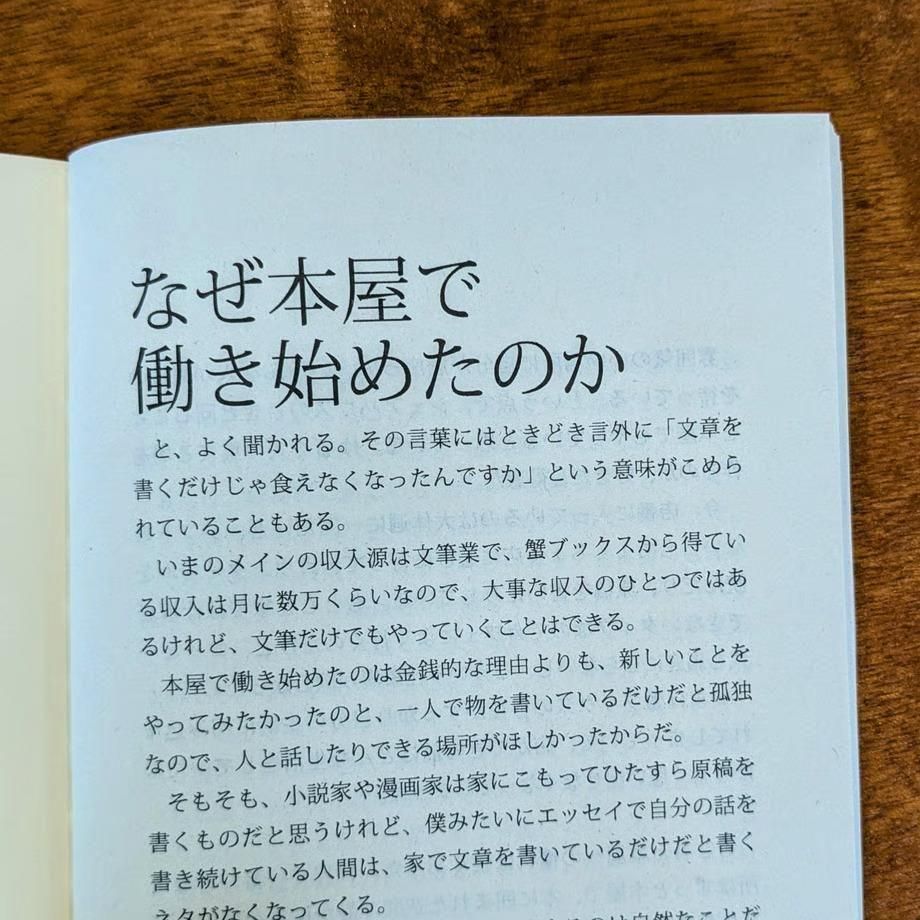 なぜ本屋で
働き始めたのか
と、よく聞かれる。その言葉にはときどき言外に「文章を
書くだけじゃ食えなくなったんですか」という意味がこめら
れていることもある。
いまのメインの収入源は文筆業で、蟹ブックスから得てい
る収入は月に数万くらいなので、大事な収入のひとつではあ
るけれど、文筆だけでもやっていくことはできる。
本屋で働き始めたのは金銭的な理由よりも、新しいことを
やってみたかったのと、一人で物を書いているだけだと孤独
なので、人と話したりできる場所がほしかったからだ。
そもそも、小説家や漫画家は家にこもってひたすら原稿を
書くものだと思うけれど、僕みたいにエッセイで自分の話を
書き続けている人間は、家で文章を書いているだけだと書く
ネタがなくなってくる。
のは自然なことだ